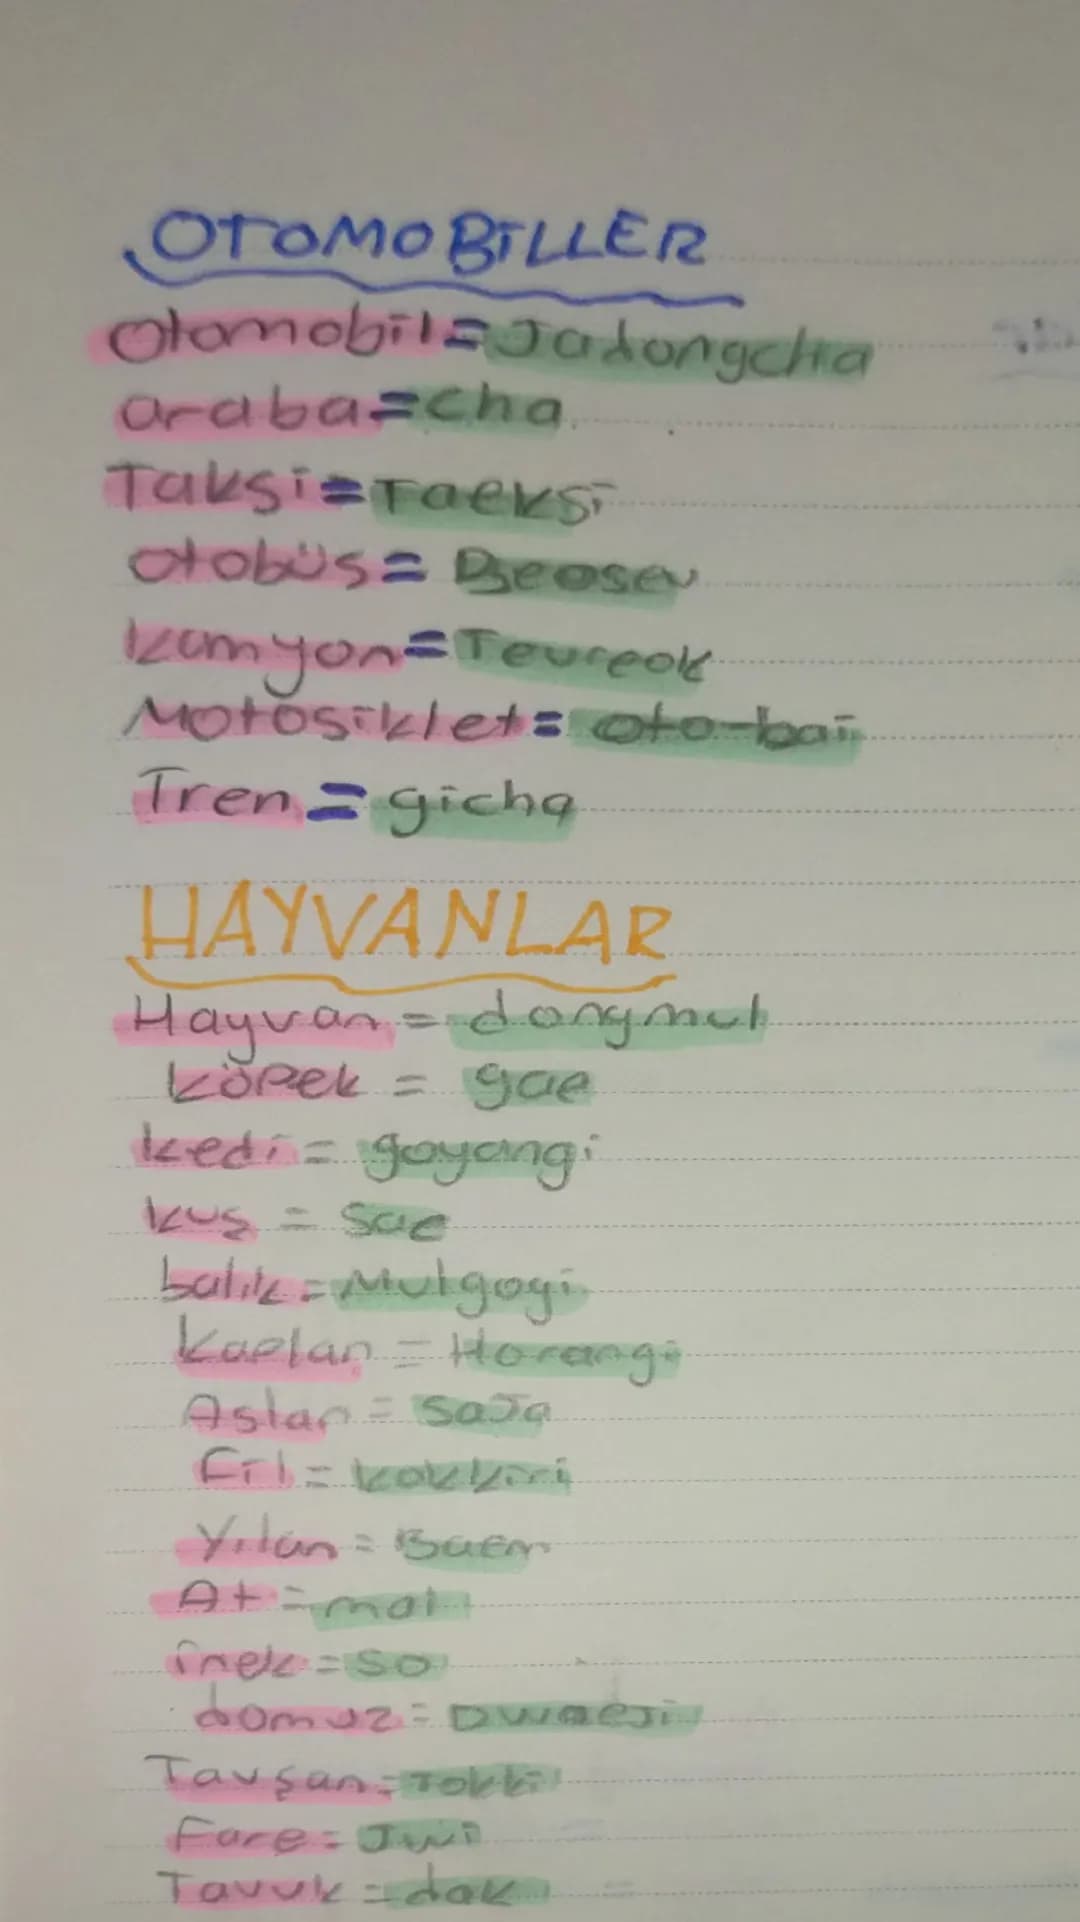 OTOMOBİLLER
otomobil=Jadongcha
araba=cha
Taksi=Taeksi
otobüs=Beoseu
kamyon=Teureok
Motosiklet=oto-bai
Tren=gicha
HAYVANLAR
Hayvan=dongmul
köpek=gae
kedi=goyangi
kuş=Sae
balık=Mulgogi
kaplan=Horangi
Aslan=SaJa
Fil=kokkiri
Yılan=Baem
At=mal
inek=so
domuz=DwaeJi
Tavşan=Tokki
Fare=Jwi
Tavuk=dak